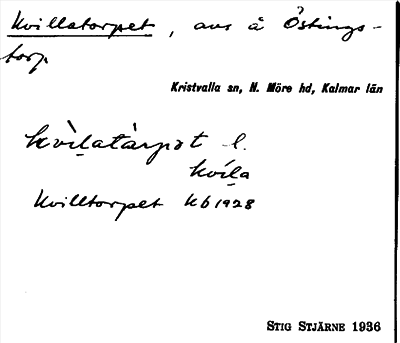 Kvillatorpet, avs å Östings-
torp
Kristvalla sn, N. Möre hd, Kalmar län
kvìlatàrpət l.
kvíla
Kvilltorpet kb 1928
STIG STJÄRNE 1936